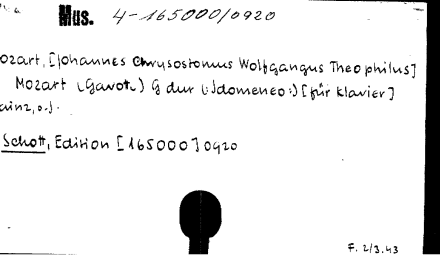 Mus. 4-165000/0920
ozart, [Johannes Chrysostomus Wolfgangus Theophilus]
Mozart (Gavott) G dur (:Idomeneo:) [für Klavier]
ainz, o.J.
Schott, Edition [165000] 0920
F. 2/3.43